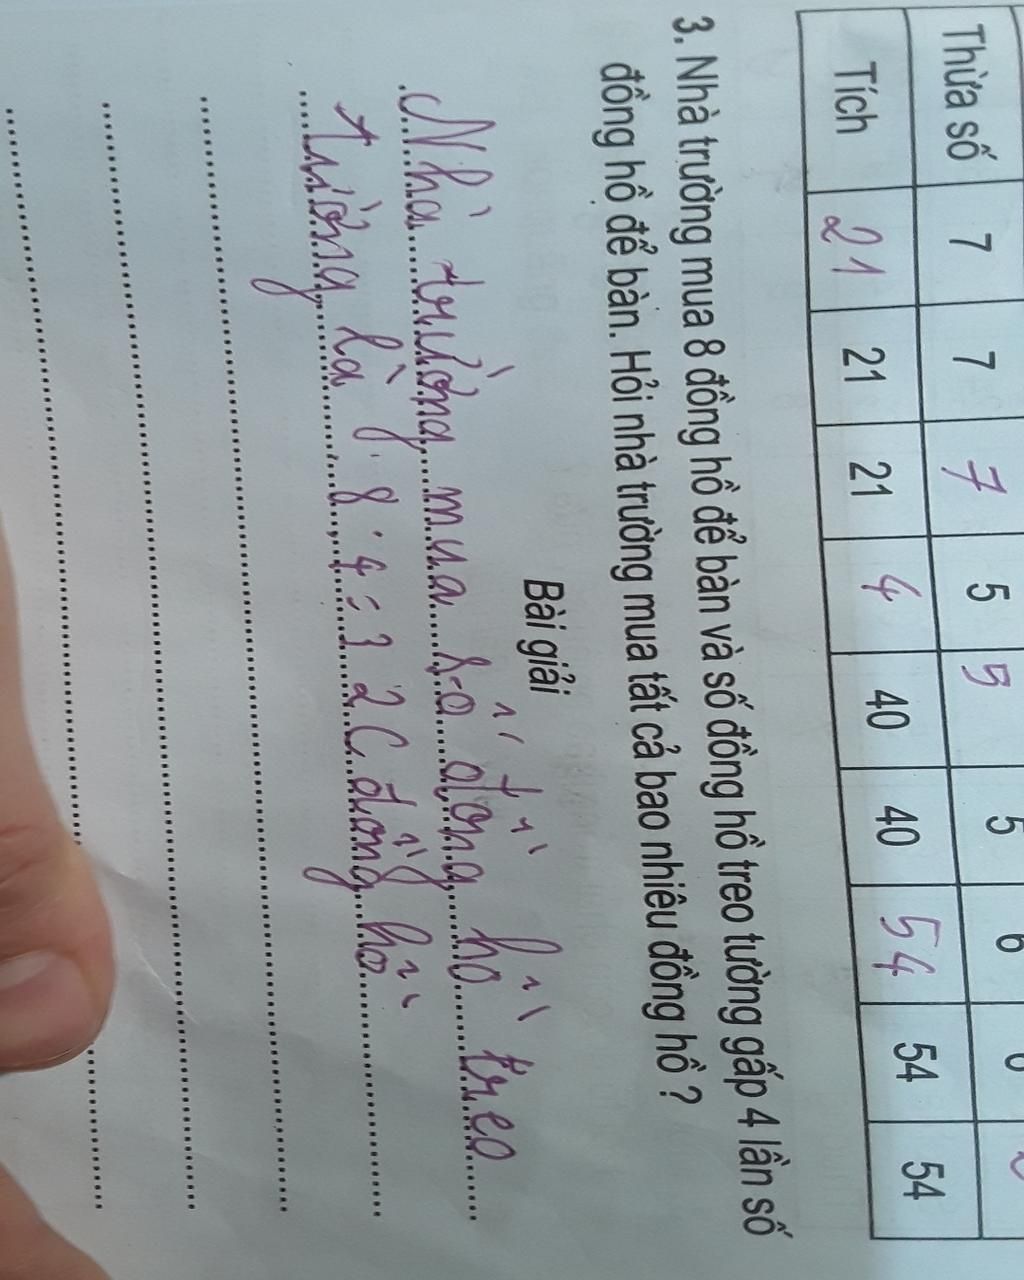 Thừa số 7 7 7 5 5 5 6
Tích 21 21 21 4 40 40 54 54 54
3. Nhà trường mua 8 đồng hồ để bàn và số đồng hồ treo tường gấp 4 lần số
đồng hồ để bàn. Hỏi nhà trường mua tất cả bao nhiêu đồng hồ ?
Bài giải
Nhà trường mua số đồng hồ treo
tường là 8 . 4 = 32 ( đồng hồ